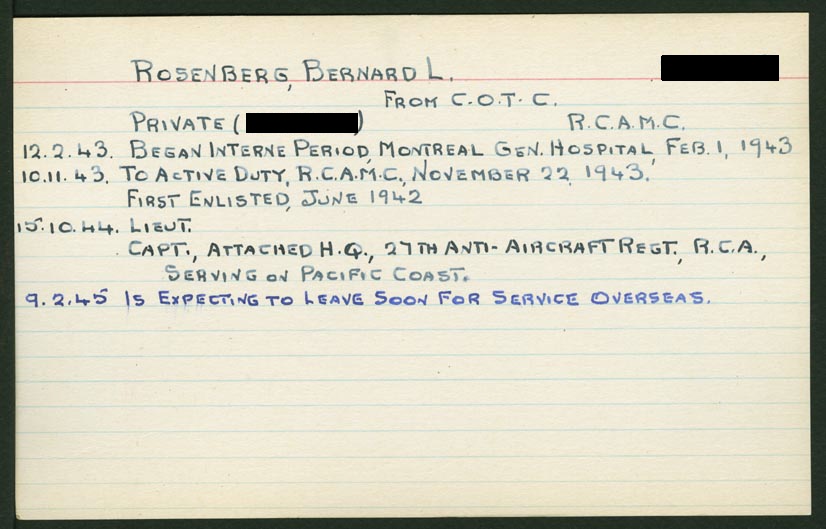 ROSENBERG, BERNARD L.
FROM C.O.T.C.
PRIVATE ( ) R.C.A.M.C.
12.2.43. BEGAN INTERNE PERIOD, MONTREAL GEN. HOSPITAL, FEB. 1, 1943
10.11.43. TO ACTIVE DUTY, R.C.A.M.C., NOVEMBER 22, 1943.
FIRST ENLISTED, JUNE 1942
15.10.44. LIEUT.
CAPT., ATTACHED H.Q., 27TH ANTI-AIRCRAFT REGT., R.C.A.,
SERVING ON PACIFIC COAST.
9.2.45 IS EXPECTING TO LEAVE SOON FOR SERVICE OVERSEAS.